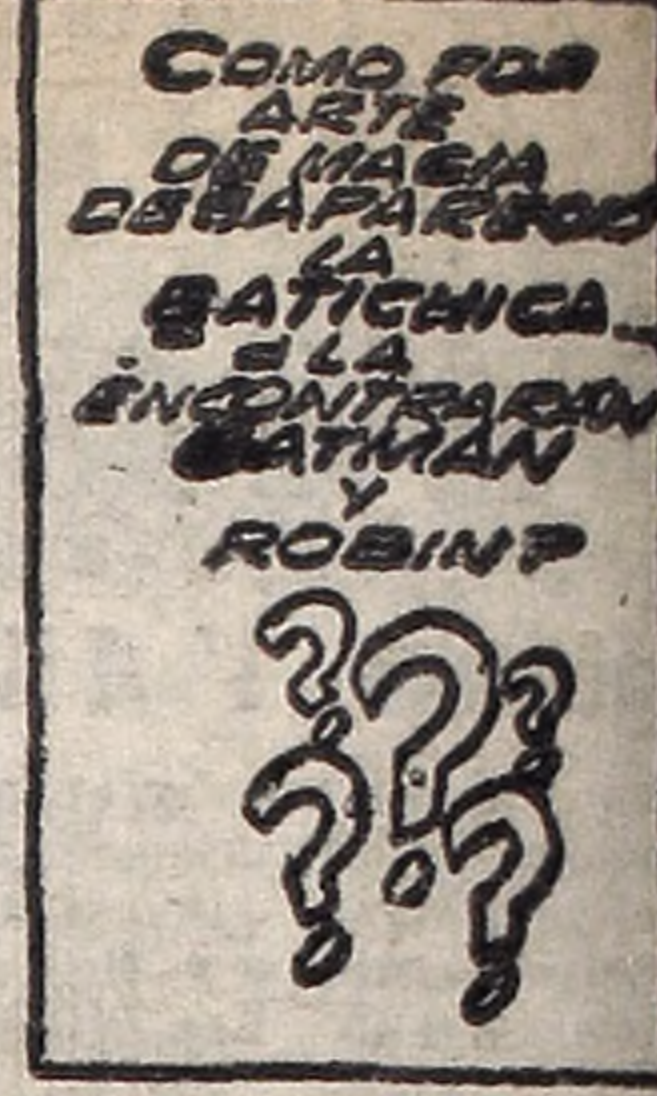 COMO POR
ARTE
DE MAGIA
DESAPARECIÓ
LA
BATICHICA...
¿LA
ENCONTRARÁN
BATMAN
Y
ROBIN?
? ? ?
? ?